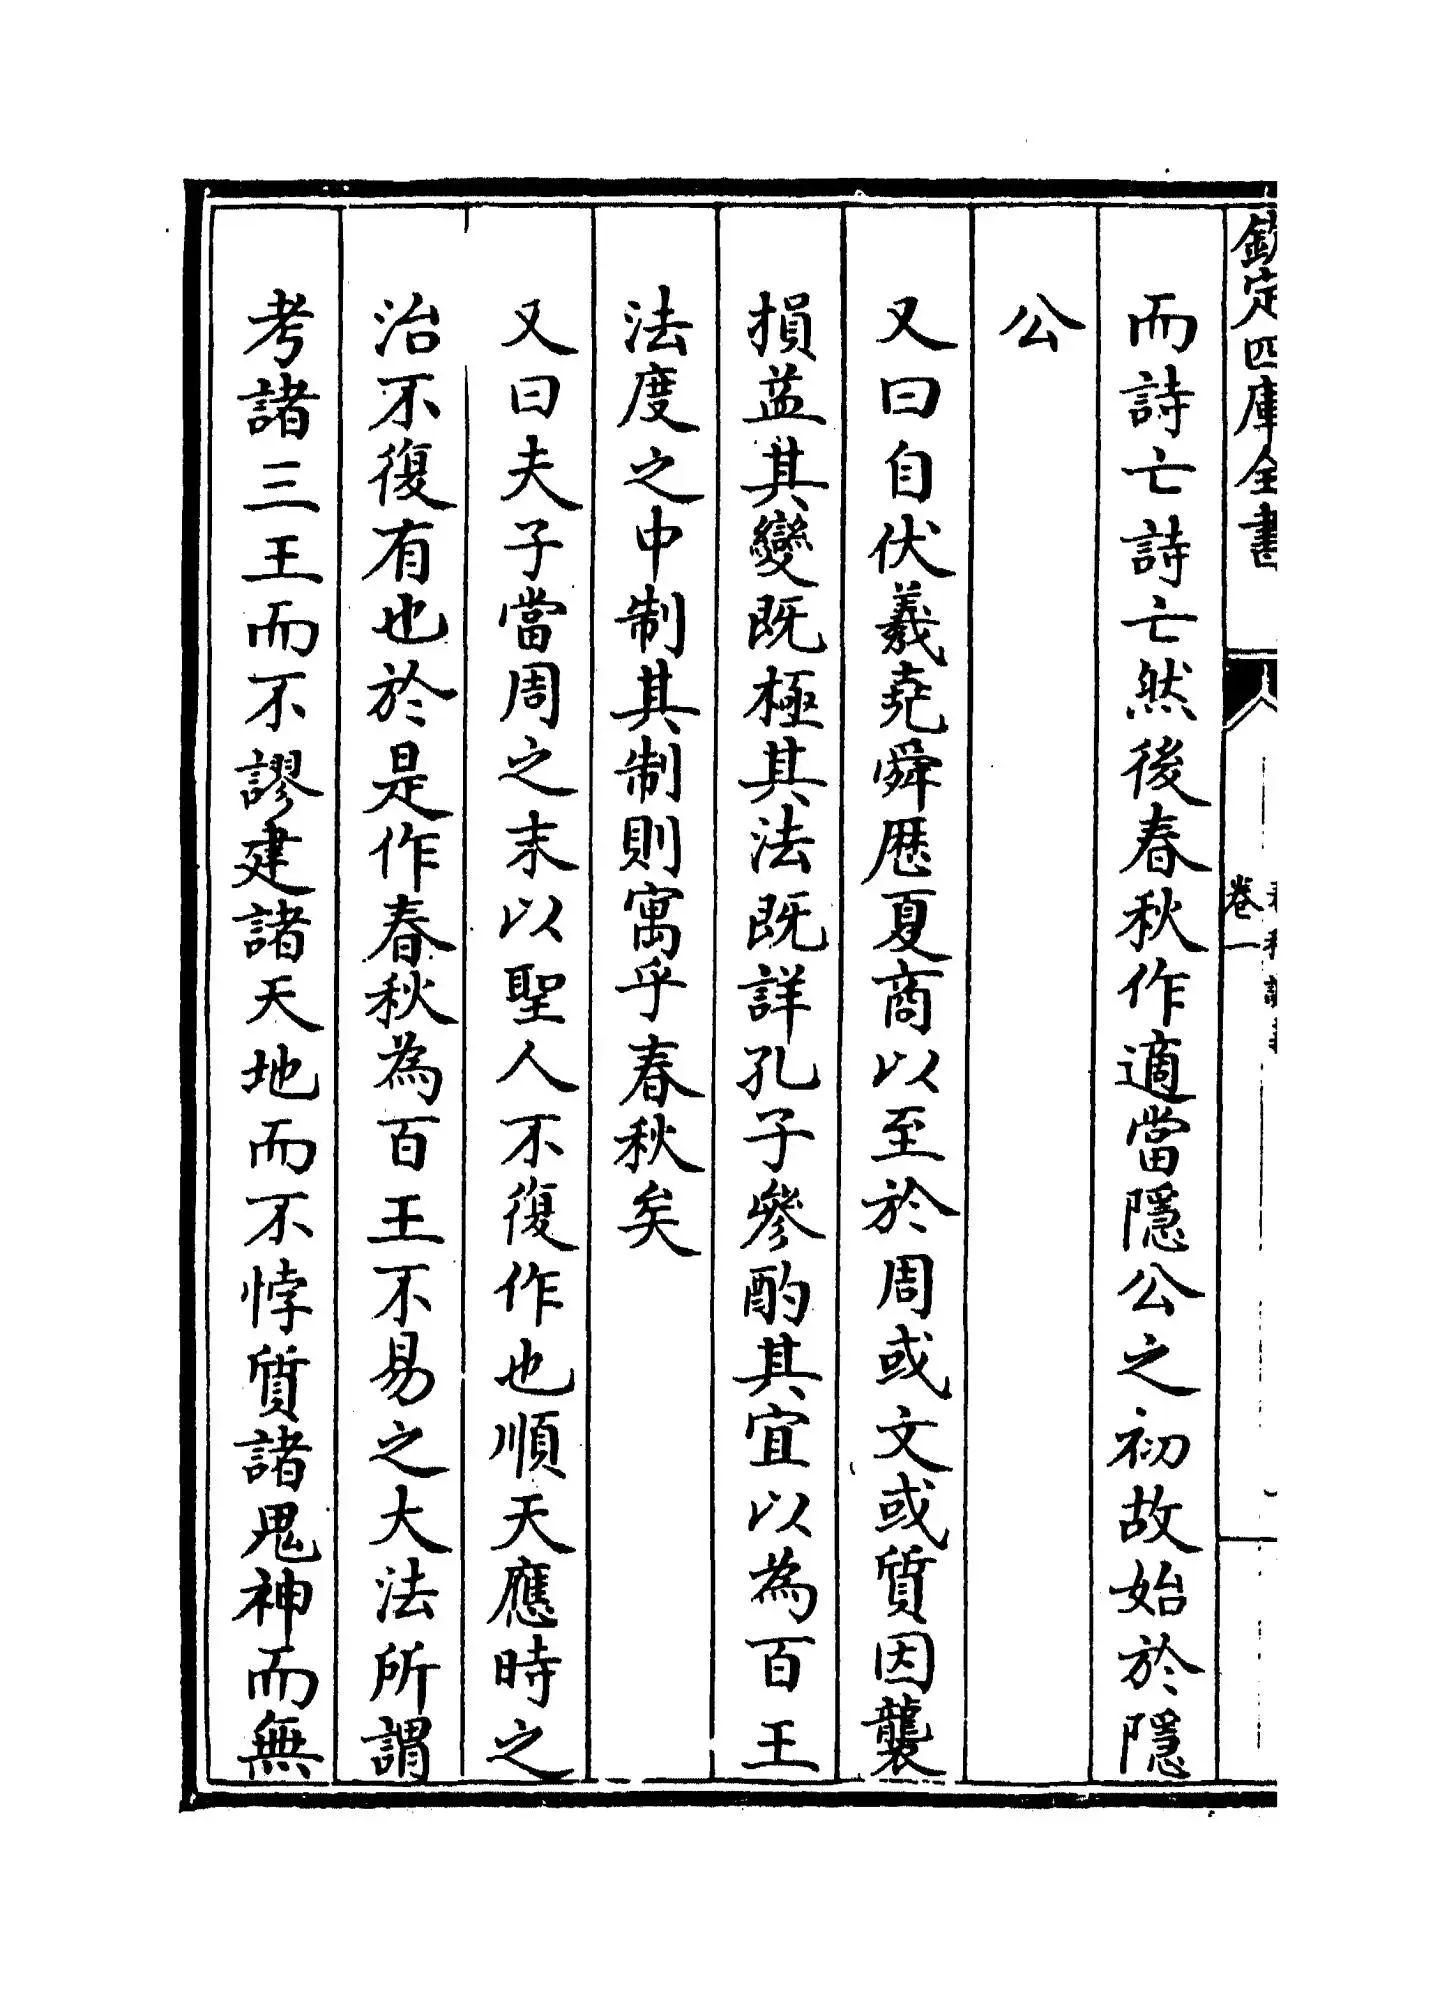 欽定四庫全書
卷一
而詩亡詩亡然後春秋作適當隱公之初故始於隱
公
又曰自伏羲堯舜歴夏商以至於周或文或質因襲
損益其變既極其法既詳孔子參酌其宜以為百王
法度之中制其制則寓乎春秋矣
又曰夫子當周之末以聖人不復作也順天應時之
治不復有也於是作春秋為百王不易之大法所謂
考諸三王而不謬建諸天地而不悖質諸鬼神而無